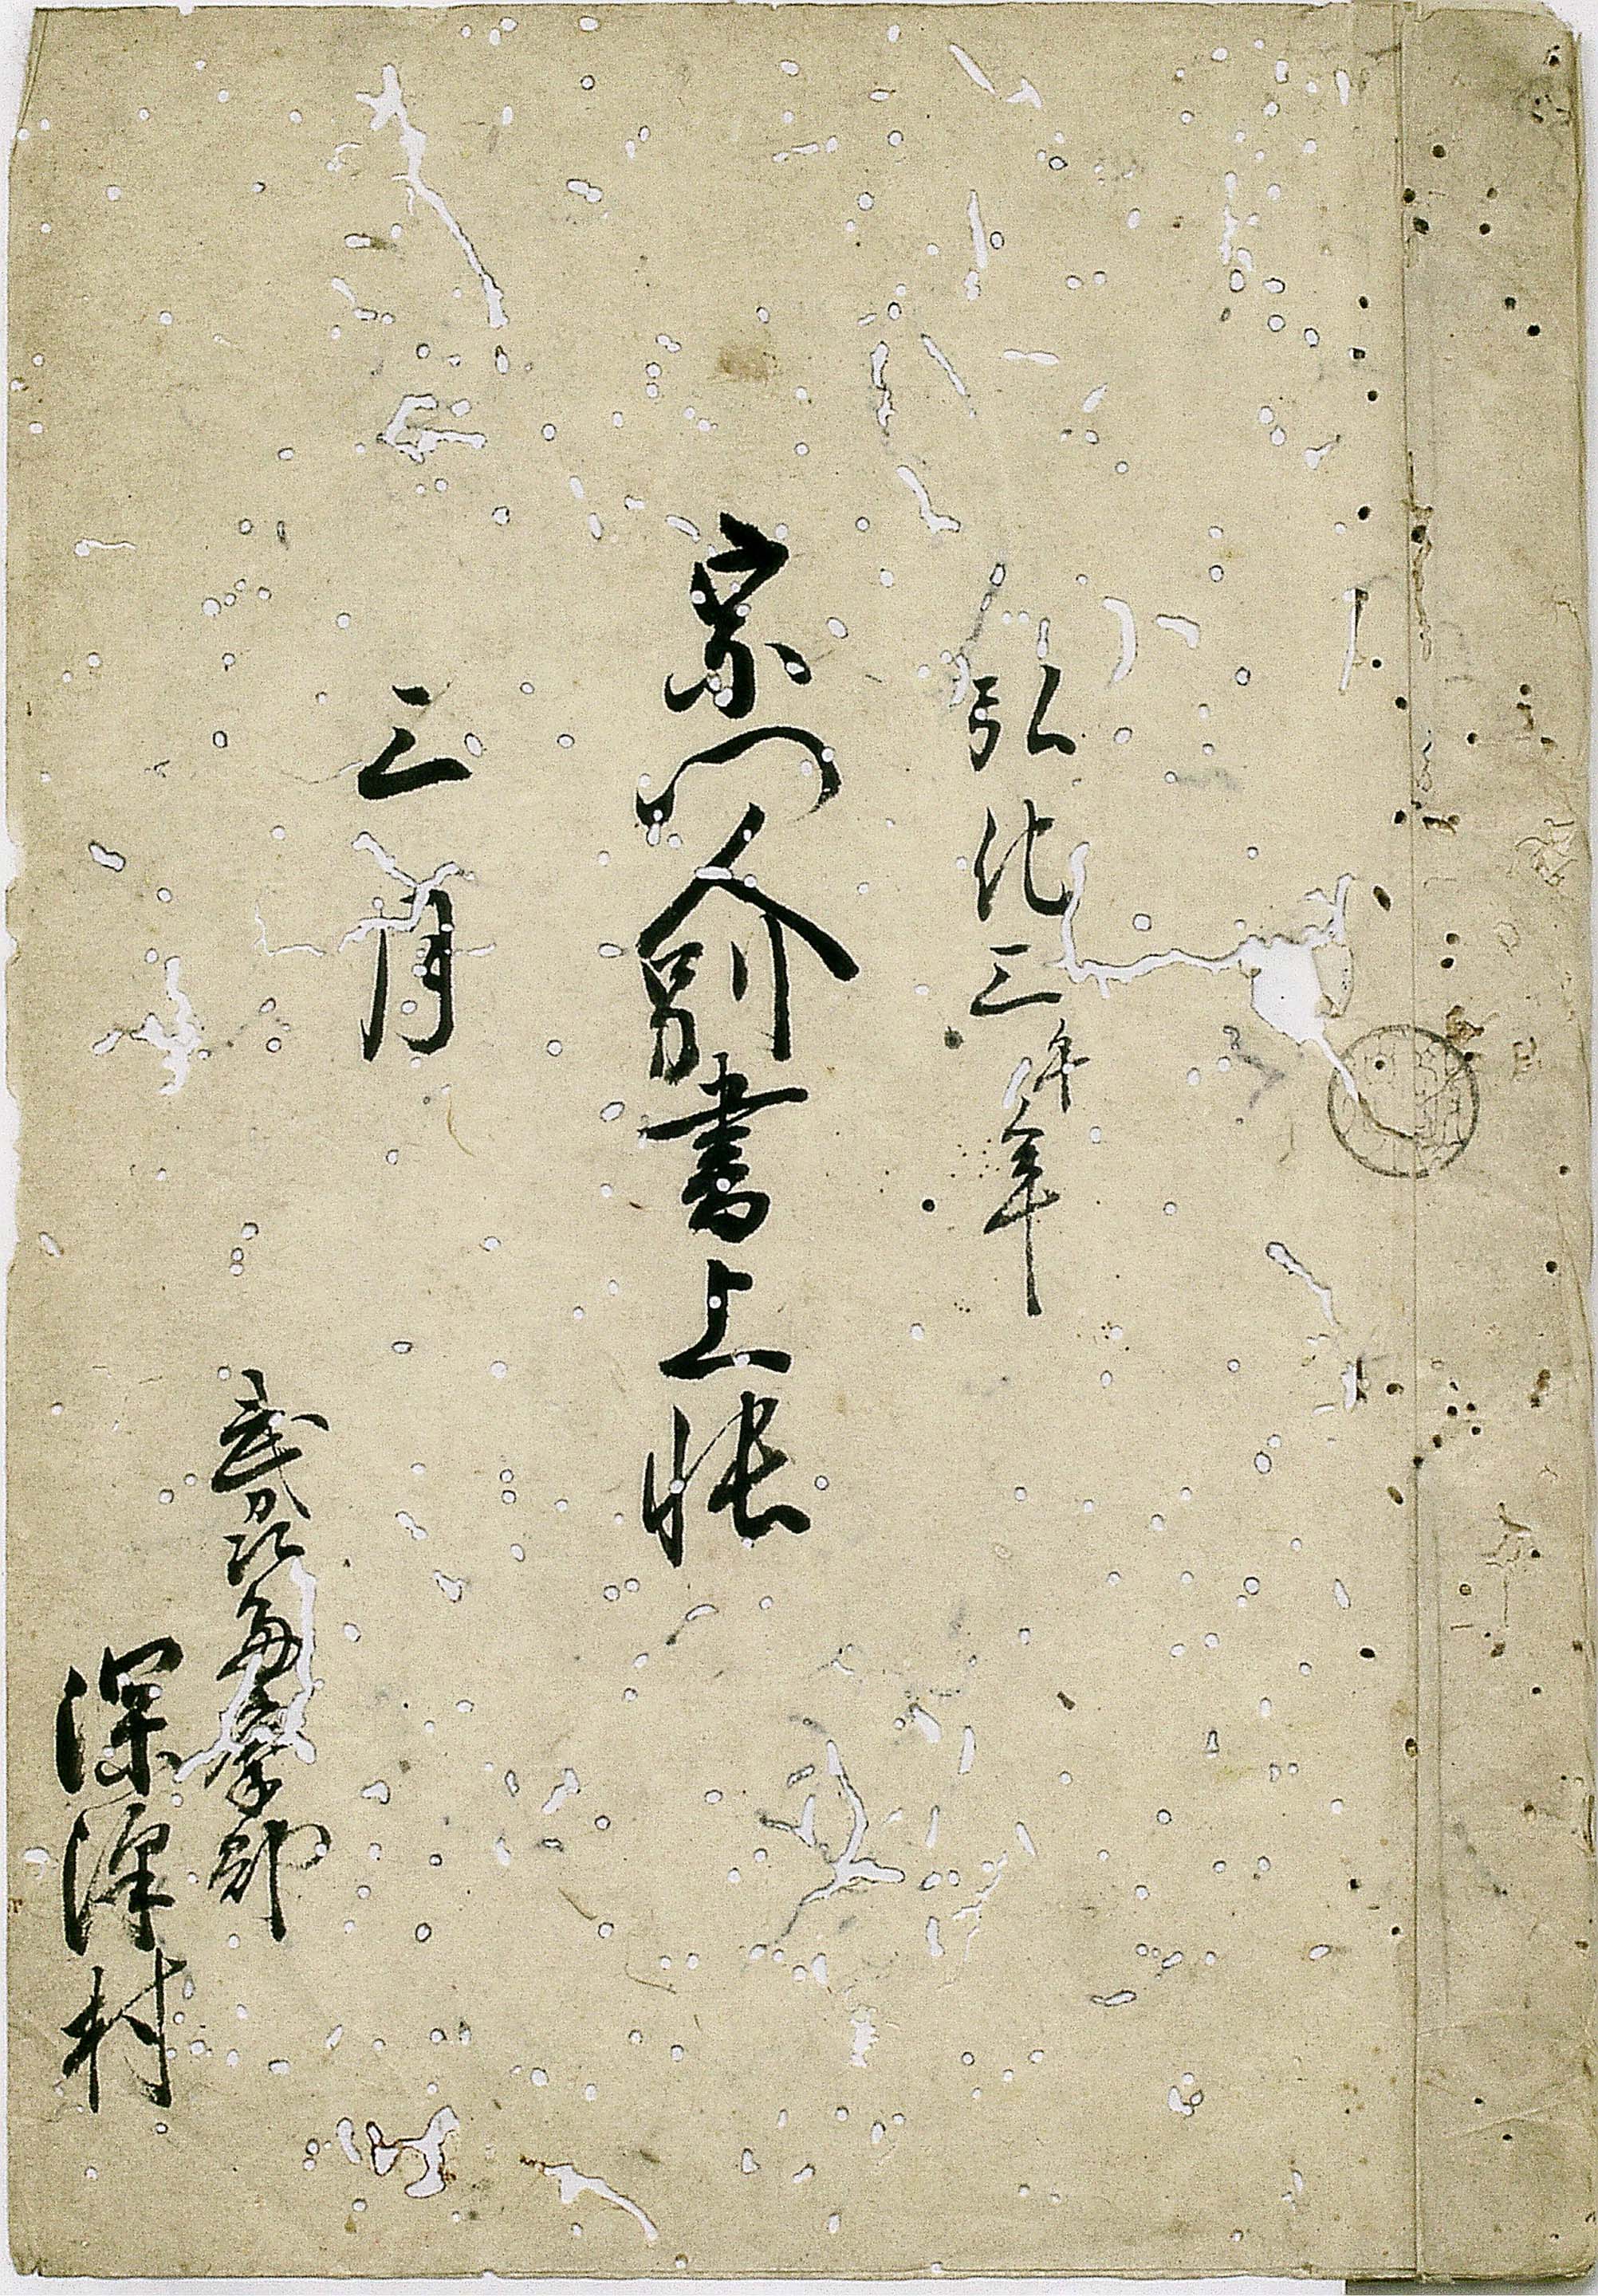 弘化三午年
宗門人別書上帳
三月
武州多摩郡
深澤村